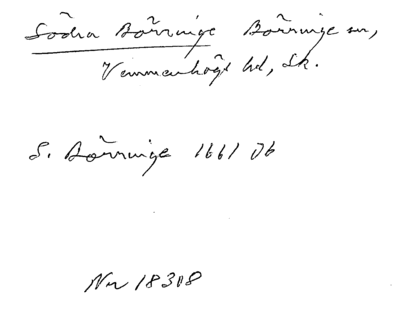 Södra Börringe Börringe sn,
Vemmenhögs hd, Sk.
S. Börringe 1661 Jb
Nr 18308